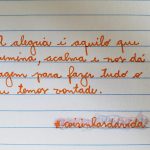 A alegria é aquilo que
ilumina, acalma e nos dá
agem para fazer tudo o
temos vontade.
#coisinhasdavida